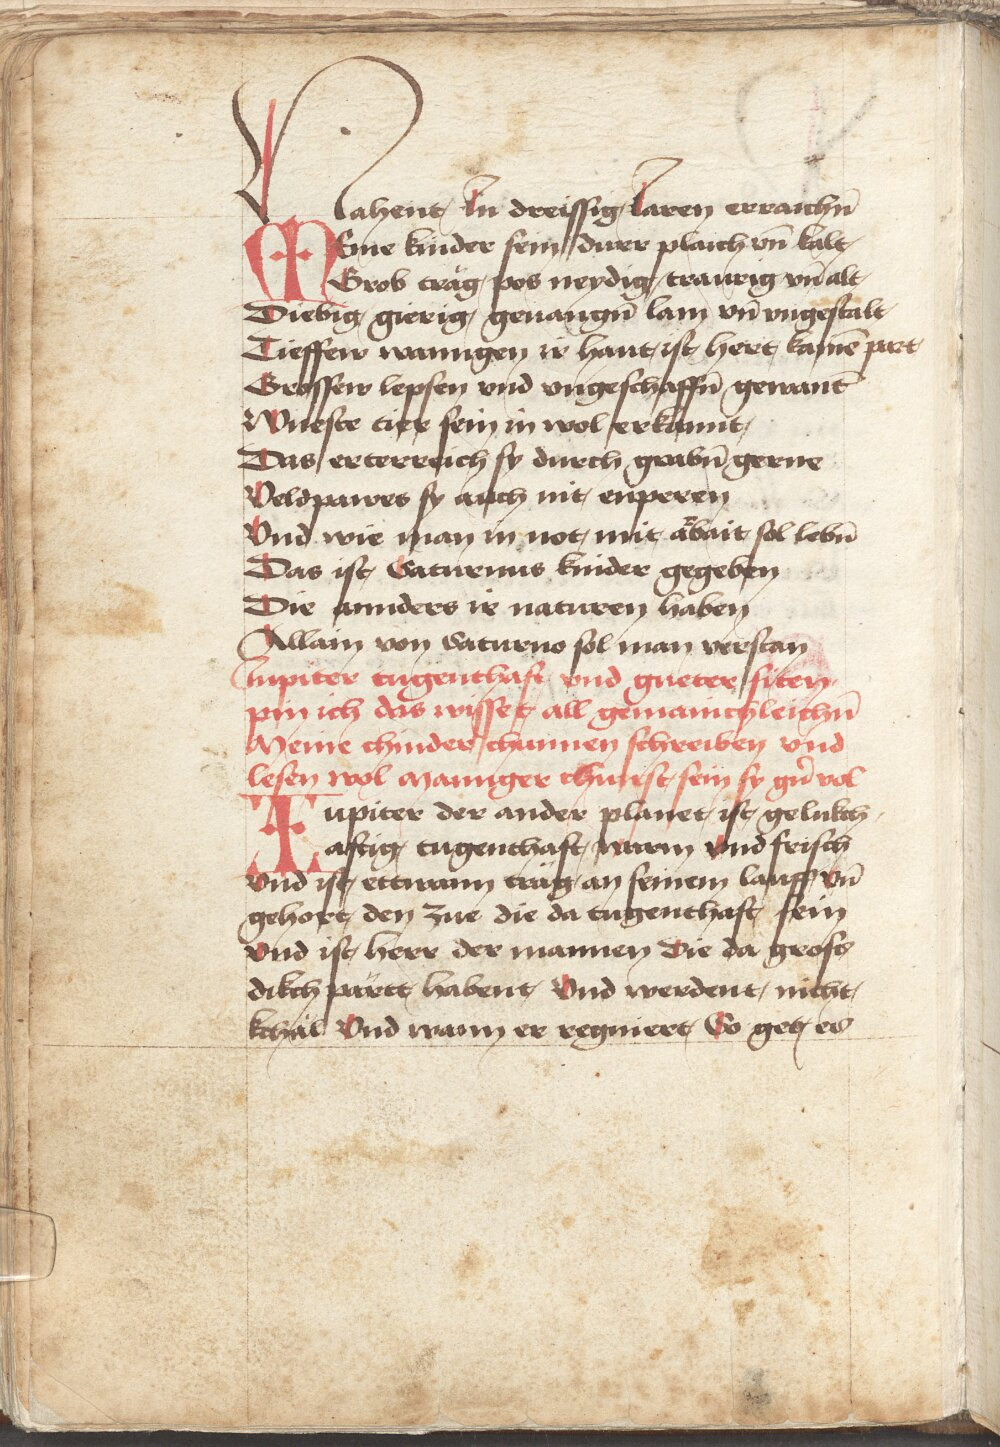 Vahent In dreissig Iaren erraichn̄
Meine kinder sein durr plaich vn̄ kalt
Grob träg pos neydig traurig vn̄ alt
Diebig gierig geuangn̄ lam vn̄ vngestalt
Tieffew wanngen ir haut ist hert kainē part
Grossew lepsen vnd vngeschaffn̄ gewant
Wueste tier sein in wol erkannt
Das erterreich sy durch grabn̄ gerne
Veldpawes sy auch nit enperen
Vnd wie man in not mit arbait sol lebn̄
Das ist Saturnus kinder gegeben
Die annders ir naturen haben
Allain von Saturno sol man verstan
Iupiter tugenthaft vnd gueter siten
pin ich das wisset all gemainchleichn̄
Meine chinder chunnen schreiben vnd
lesen wol Manniger chunst sein sy gar vol
Iupiter der ander planet ist gelukch
aftig tugenthaft warm vnd frisch
Vnd ist ettwann träg an seinem lauff vn̄
gehort den zue die da tugenthaft sein
vnd ist herr der mannen Die da gross
dikch pärtt habent Vnd werdent nicht
kchal Vnd wann er regniert So get es